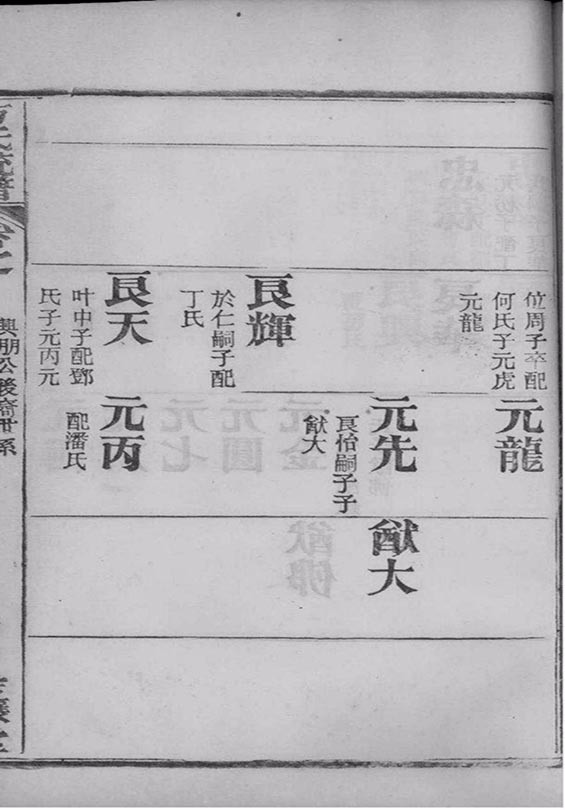 位周子卒配
何氏子元虎
元龍
元龍
元先
良怡嗣子子
猷大
猷大
良輝
於仁嗣子配
丁氏
良天
叶中子配鄧
氏子元丙元
元丙
配潘氏
氏統譜
卷之
與朋公後裔世系